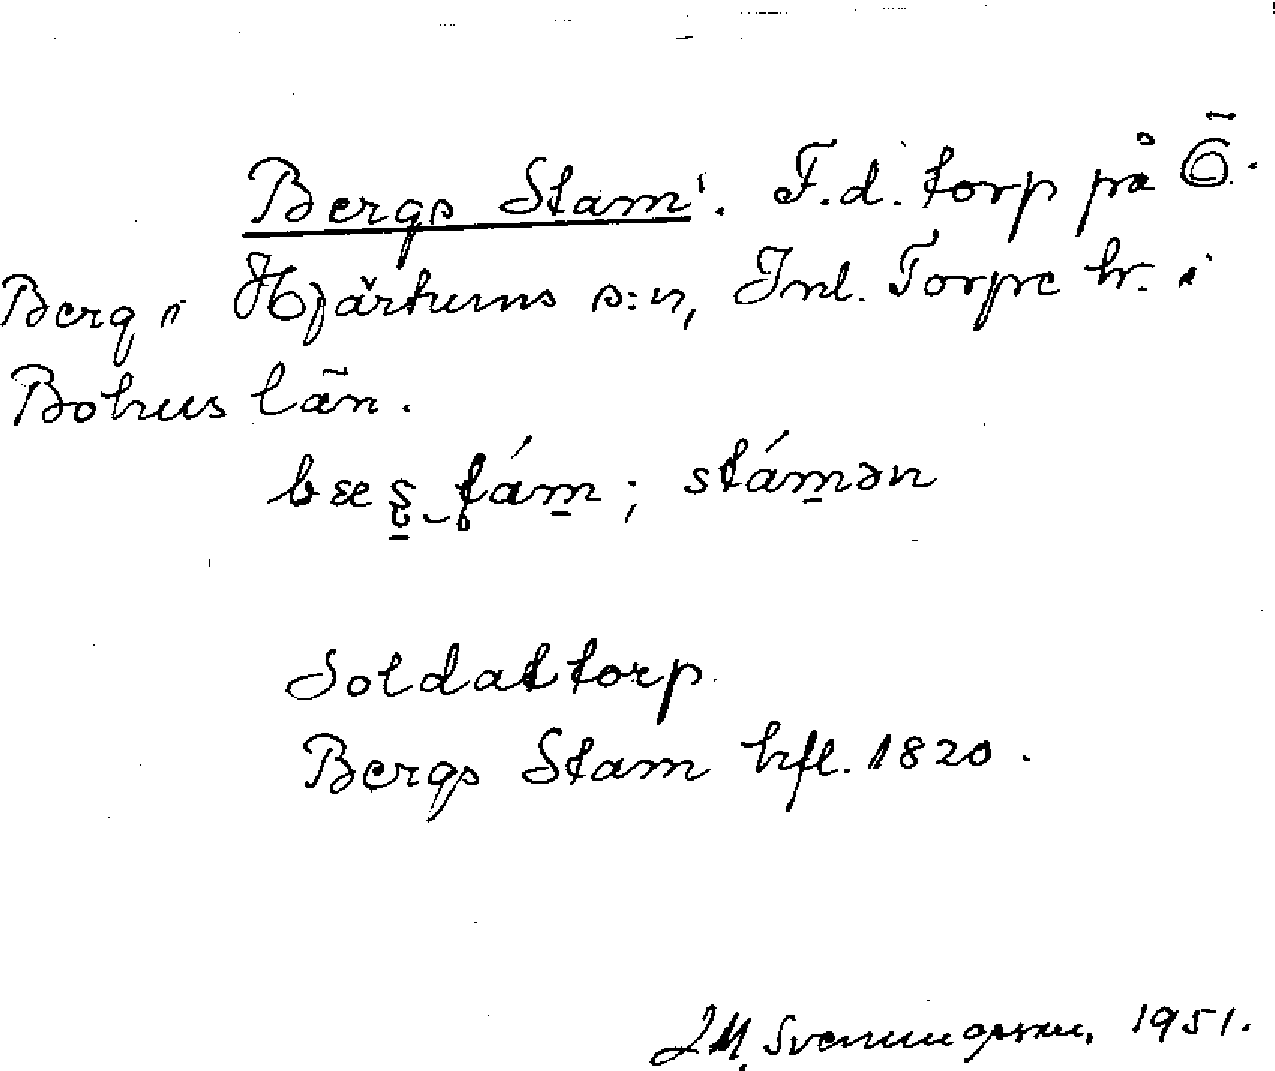 Bergs Stam. F.d. torp på Ö.
Berg i Hjärtums s:n, Inl. Torpe hr. i
Bohus län.
bæʂ_ʈám; stámən
Soldattorp
Bergs Stam hfl. 1820.
Svenningsson, 1951.